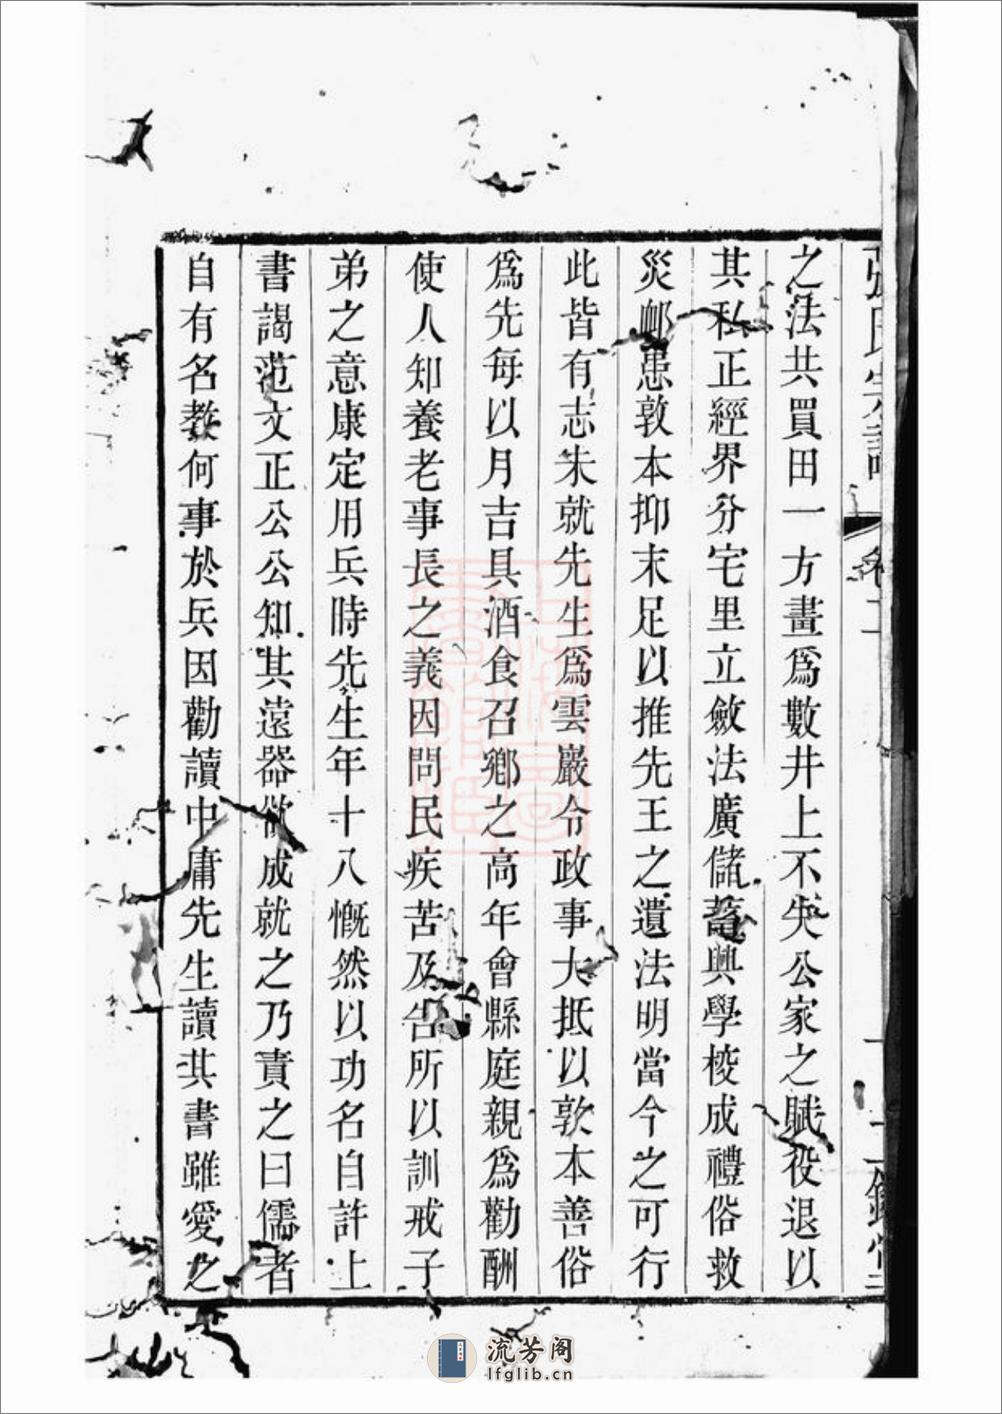 張氏宗譜 卷二
之法共買田一方畫爲數井上不失公家之賦役退以
其私正經界分宅里立斂法廣儲蓄興學校成禮俗救
災卹患敦本抑末足以推先王之遺法明當今之可行
此皆有志未就先生爲雲巖令政事大抵以敦本善俗
爲先每以月吉具酒食召鄉之高年會縣庭親爲勸酬
使人知養老事長之義因問民疾苦及告所以訓戒子
弟之意康定用兵時先生年十八慨然以功名自許上
書謁范文正公公知其遠器欲成就之乃責之曰儒者
自有名教何事於兵因勸讀中庸先生讀其書雖愛之
流芳阁
lfglib.cn